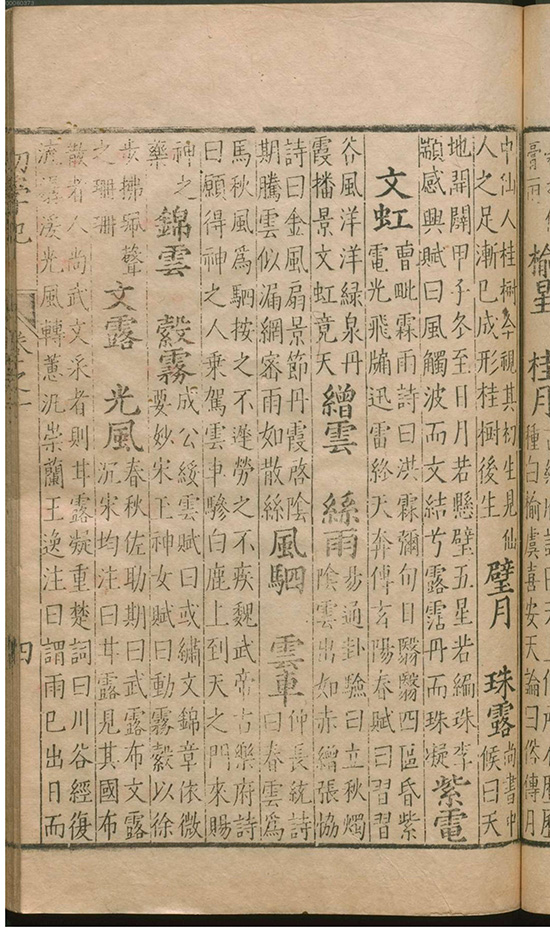 榆星 桂月
種白榆虞喜安天論曰俗傳月
中仙人桂樹今視其初生見仙
人之足漸已成形桂樹後生
璧月 珠露
尚書中
候曰天
地開闢甲子冬至日月若懸璧五星若編珠李
顒感興賦曰風觸波而文結兮露霑丹而珠凝
紫電
文虹
曹毗霖雨詩曰洪霖彌旬日翳翳四區昏紫
電光飛牖迅雷終天奔傅玄陽春賦曰習習
谷風洋洋綠泉丹
霞播景文虹竟天
繒雲 絲雨
易通卦驗曰立秋燭
陰雲出如赤繒張協
詩曰金風扇景節丹霞啓陰
期騰雲似漏網密雨如散絲
風駟 雲車
仲長統詩
曰春雲爲
馬秋風爲駟按之不遲勞之不疾魏武帝古樂府詩
曰願得神之人乘駕雲車驂白鹿上到天之門來賜
神之
藥
錦雲 縠霧
成公綏雲賦曰或繡文錦章依微
要妙宋玉神女賦曰動霧縠以徐
步拂珮聲
之珊珊
文露 光風
春秋佐助期曰武露布文露
沉宋均注曰甘露見其國布
散者人尚武文采者則甘露凝重楚詞曰川谷經復
流潺湲光風轉蕙汎崇蘭王逸注曰謂雨已出日而
初學記 卷之一 四